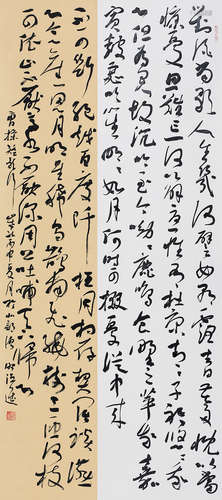 對酒當歌人生幾何譬如朝露去日苦多慨當以
慷憂思難忘何以解憂惟有杜康青青子衿悠悠我
心但為君故沉吟至今呦呦鹿鳴食野之苹我有嘉
賓鼓瑟吹笙明明如月何時可掇憂從中來
不可斷絕越陌度阡枉用相存契闊談讌
心念舊恩月明星稀烏鵲南飛繞樹三匝何枝
可依山不厭高海不厭深周公吐哺天下歸心
曹操短歌行